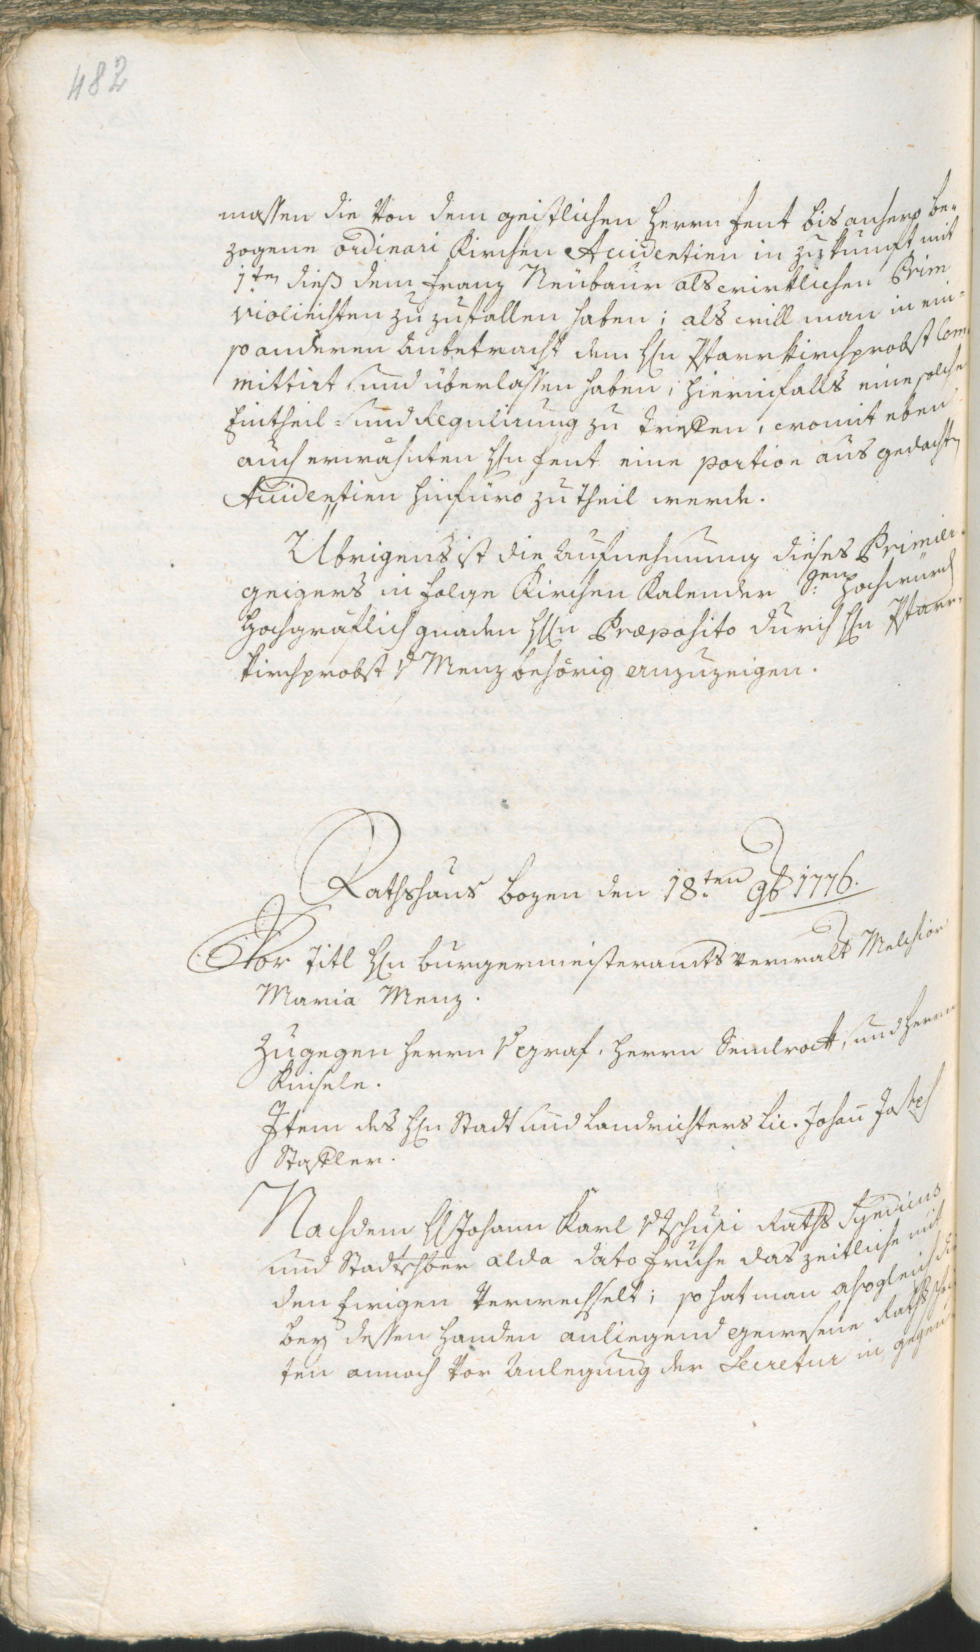 482
massen die von dem geistlichen Herrn Hent bis anhero be-
zogene ordinari Kirchen Accidentien in zukunft mit
1ten dieß dem Franz Neubaur als wirklichen Prim
violinisten zuzufallen haben; als will man in ein-
so anderen Anbetracht dem Hn Pfarrkirchprobst Com-
mittirt und überlassen haben, hierinfalls eine solche
Eintheil- und Regulirung zu treffen, womit eben
auch erwähnten Hn Hent eine portion aus gedachten
Accidentien hinfüro zu theil werde.
Ubrigens ist die Aufnehmung dieses Primier-
geigers in Folge Kirchen Kalender Sr: Hochwürd
Hochgräflich gnaden Hn Præposito durch Hn Pfarr-
kirchprobst v Menz behörig anzuzeigen.
Rathshaus Bozen den 18.ten 9b 1776.
Vor Titl Hn Burgermeisteramts verwalt Melchior
Maria Menz.
Zugegen Herrn v egraf, Herrn Semlrock, und Herrn
Kinsele.
Item des Hn Stadt und Landrichters Lic. Johan Joseph
Stapler.
Nachdem H Johann Karl v Tschusi Raths Syndicus
und Stadtschbr alda dato fruhe das zeitliche mit
den Ewigen verwechselt; so hat man alsogleich die
bey dessen Handen anliegend gewesene Raths schrif-
ten annoch vor Anlegung der Secretur in gegen-